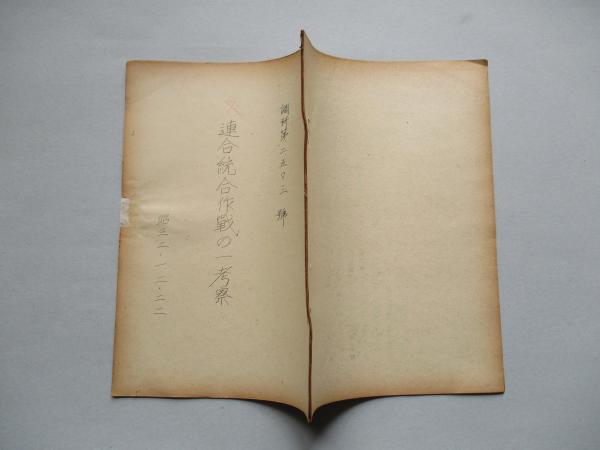 調研第二五〇三號
連合統合作戰の一考察
昭三二・一二・二二